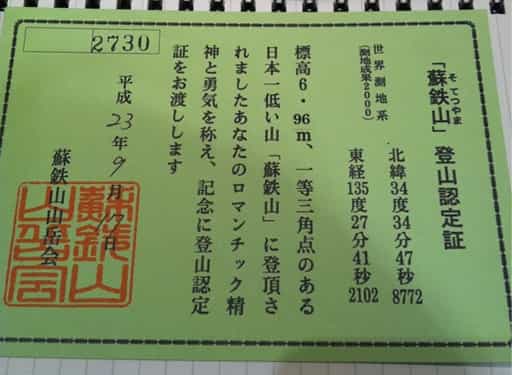 2730
「蘇鉄山」登山認定証
そてつやま
世界測地系
(測地成果2000)
北緯34度34分47秒8772
東経135度27分41秒2102
標高6・96m、一等三角点のある
日本一低い山「蘇鉄山」に登頂さ
れましたあなたのロマンチック精
神と勇気を称え、記念に登山認定
証をお渡しします
平成23年9月17日
蘇鉄山山岳会